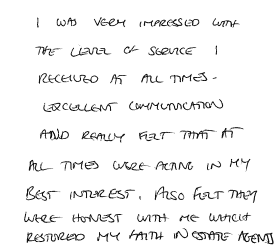 I WAS VERY IMPRESSED WITH
THE LEVEL OF SERVICE I
RECEIVED AT ALL TIMES -
EXCELLENT COMMUNICATION
AND REALLY FELT THAT AT
ALL TIMES WERE ACTING IN MY
BEST INTEREST. ALSO FELT THEY
WERE HONEST WITH ME WHICH
RESTORED MY FAITH IN ESTATE AGENTS